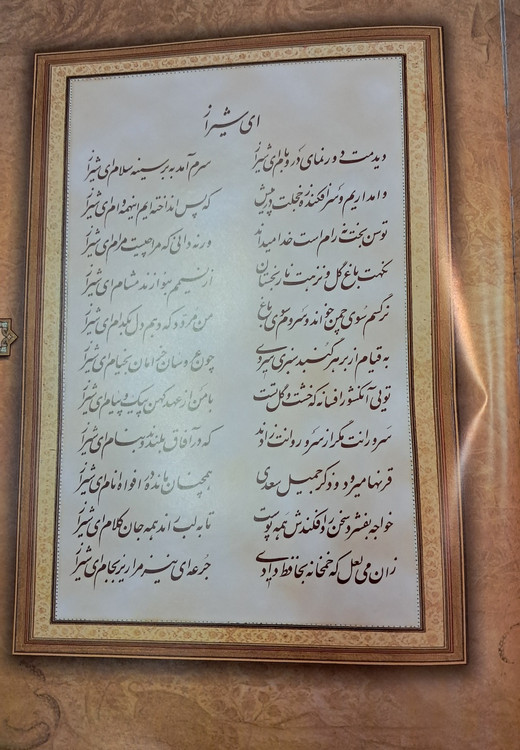 ای شیراز
دیدمت دورنمای در و بام ای شیراز سرم آمد به بر سینه سلام ای شیراز
وامداریم و سرافکنده ز خجلت در پیش که پس انداخته‌ایم اینهمه وام ای شیراز
توسن بخت نه رام است خدا میداند ورنه دانی که مرا چیست مرام ای شیراز
نکهت باغ گل و نزهت نارنجستان از نسیمم بنوازند مشام ای شیراز
نرگسم سوی چمن خواند و سروم سوی باغ من مردد که دهم دل بکدام ای شیراز
به قیام از بر هر گنبد سبزی سروی چون عروسان خرامان بخیام ای شیراز
توئی آنکشور افسانه که خشت و گل تست با من از عهد کهن پیک و پیام ای شیراز
سرورانت مگر از سرو روانت زادند که در آفاق بلندند و بنام ای شیراز
قرنها میرود و ذکر جمیل سعدی همچنان مانده در افواه انام ای شیراز
خواجه بفشرد سخن را و فکندش همه پوست تا به لب راند همه جان کلام ای شیراز
زان می لعل که خمخانه بحافظ دادی جرعه‌ای نیز مرا ریز بجام ای شیراز